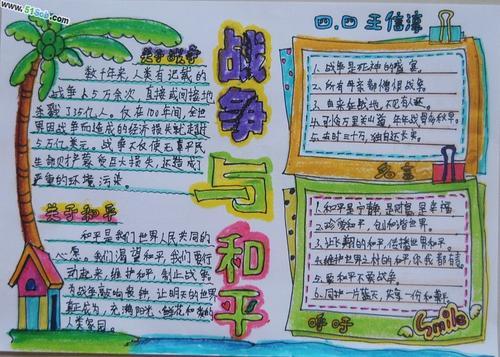 www.51Sob.com
关于战争
数千年来,人类有记载的
战争大5万余次,直接或间接地
杀戮了35亿人。仅在100年间,全世
界因战争而造成的经济损失就超过
5万亿美元。战争不仅使无辜平民
生命财产蒙受巨大损失,还造成了
严重的环境污染。
关于和平
和平是我们世界人民共同的
心愿。我们渴望和平,我们要行
动起来,维护和平,制止战争。
为战争敲响丧钟,让明天的世界
真正成为,充满阳光、鲜花和爱的
人类家园。
战争与和平
四.四 王信淳
1.战争是死神的盛宴。
2.所有母亲都憎恨战争。
3.自来征战地,不见有人还。
4.可怜万里关山道,年年战骨多秋草。
5.去时三十万,独自还长安。
名言
1.和平是宁静,是财富,是幸福。
2.珍爱和平,创和谐世界。
3.让长期的和平,传播世界和平。
4.维护世界上村的和平,你我都有责。
5.要和平不要战争。
6.同护一片蓝天,共享一份和平。
呼吁
Smile